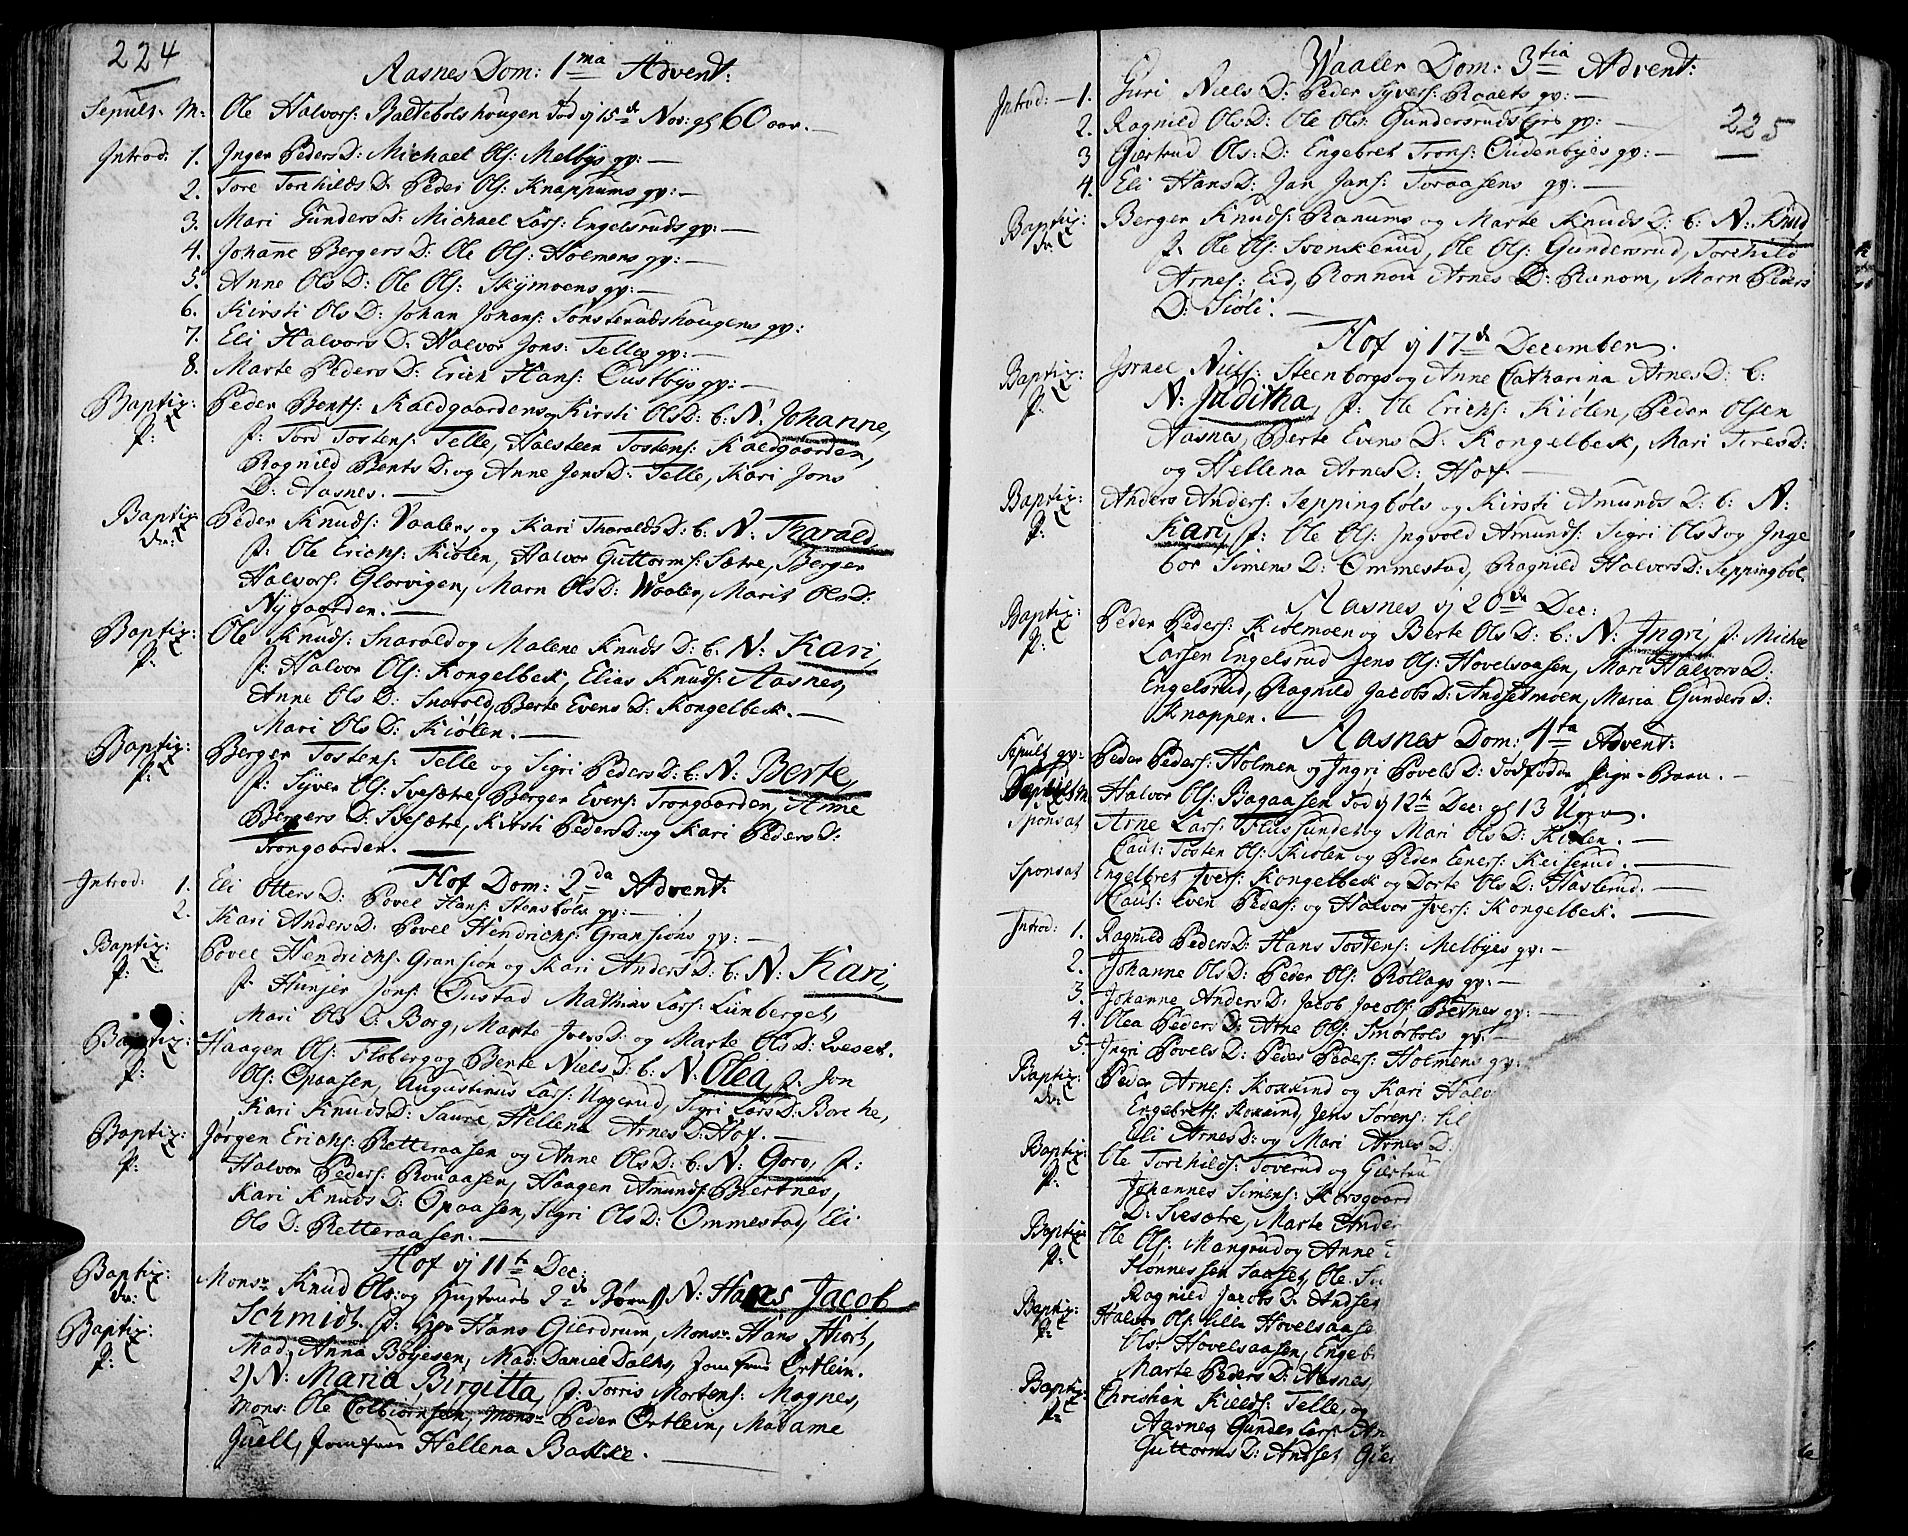 224
Aasnes Dom: 1ma Advent:
Sepult. M: Ole Halvors: Baltebolshougen død ij 15de Nov: gl 60 aar.
Introd: 1. Inger PedersD: Michael Ols: Melbÿs gv:
2. Tore TorkildsD: Peder Ols: Knappums gv:
3. Mari GundersD: Michael Lars: Engelsruds gv:
4. Johane BergersD: Ole Ols: Holmens gv:
5. Anne OlsD: Ole Ols: Skÿmoens gv:
6. Kirsti OlsD: Johan Johans: Sønsterudshougens gv:
7. Eli HalvorsD: Halvor Jons: Telles gv:
8. Marte PedersD: Erich Hans: Oustbÿs gv:
Baptiz: Peder Bents: Kaldgaarden og Kirsti OlsD: b: N: Johanne,
f: Tord Tostens: Telle, Halsteen Tostens: Kaldgaarden,
Ragnild BentsD: og Anne JensD: Telle, Kari Jons
D: Aasnes.
Baptiz: Peder Knuds: Vaalers og Kari TharaldsD: b: N: Tharald
f: Ole Erichs: Kiølen, Halvor Guttorms: Sætre, Berger
Halvors: Glorvigen, Marn OlsD: Waaler, Marit OlsD:
Nÿgaarden.
Baptiz: Ole Knuds: Snarold og Malene KnudsD: b: N: Kari,
f: Halvor Ols: Kongelbeck, Elias Knuds: Aasnes,
Anne OlsD: Snarold, Berte EvensD: Kongelbeck.
Mari OlsD: Kiølen.
Baptiz: Berger Tostens: Telle og Sigri PedersD: b: N: Berte,
f: Syver Ols: Svesætre, Berger Evens: Trongaarden, Anne
BergersD: Svesætre, Kirsti PedersD: og Kari PedersD:
Trongaarden.
Hof Dom: 2da Advent:
Introd: 1. Eli OttersD: Povel Hans: Stensbols gv:
2. Kari AndersD: Povel Hendrichs: Gransiøns gv:
Baptiz: Povel Hendrichs: Gransion og Kari AndersD: b: N: Kari,
f: Hunjer Jons: Oustad Mathias Lars: Lünberget,
Mari OlsD: Borg, Marte IversD: og Marte OlsD: Qveset.
Baptiz: Haagen Ols: Floberg og Berte NielsD: b: N: Olea, f: Jon
Ols: Opaasen, Augustinus Lars: Uggerud, Sigri LarsD: Borche,
Kari KnudsD: Saura, Hellena ArnesD: Hof.
Baptiz: Jørgen Erichs: Retteraasen og Anne OlsD: b: N: Goro, f:
Halvor Peders: Rouaasen, Haagen Amunds: Bertnes,
Kari KnudsD: Opaasen, Sigri OlsD: Ommestad, Eli
OlsD: Retteraasen.
Hof ij 11te Dec:
Baptiz: Monsr Knud Ols: og Hustrues 2de Børn N: Hans Jacob
Schmidt, f: Hr Hans Gierdrum, Monsr Hans Hiort,
Baptiz: Mad: Anna Boÿesen, Mad: Daniel Dalks, Jomfrue Ørtlein.
2) N: Maria Birgitta, f: Torris Mortens: Magnes,
Mons: Ole Colbiørnsen, Monsr Peder Ørtlein, Madame
Juell, Jomfrue Hellena Bakke.
225
Waaler Dom: 3tia Advent:
Introd: 1. Guri NielsD: Peder Syvers: Roaets gv:
2. Ragnild OlsD: Ole Ols: Gundersruds gv:
3 Giertrud Ols:D: Engebret Trons: Oudenbÿes gv:
4. Eli HansD: Jan Jans: Toraasens gv:
Baptiz: Berger Knuds: Ranums og Marte KnudsD: b: N: Knud
f: Ole Ols: Svenskerud, Ole Ols: Gundersrud, Torchild
Arnes: Eid, Ronnou ArnesD: Ranom, Marn Peders
D: Sioli.
Hof ij 17de December.
Baptiz: Israel Niels: Steenborgs og Anne Catharina ArnesD: b:
N: Juditha, f: Ole Erichs: Kiølen, Peder Olsen
Aasnes, Berte EvensD: Kongelbeck, Mari ToresD:
og Hellena ArnesD: Hof.
Baptiz: Anders Anders: Seppingbols og Kirsti AmundsD: b: N:
Kari, f: Ole Ols: Ingvold Amunds: Sigri OlsD og Inge
bor SimensD: Ommestad, Ragnild HalvorsD: Seppingbol.
Aasnes ij 20de Dec:
Baptiz: Peder Peders: Kiolmoen og Berte OlsD: b: N: Ingri, f: Michel
Larsen Engelsrud Jens Ols: Hovelsaasen, Mari HalvorsD:
Engelsrud, Ragnild JacobsD: Andsetmoen, Maria GundersD:
Knappen.
Aasnes Dom: 4ta Advent:
Sepult gv: Peder Peders: Holmen og Ingri PovelsD: dødfødde Pige-Barn.
Halvor Ols: Bagaasen død ij 12te Dec: gl 13 Uger.
Sponsat Arne Lars: Flussundet og Mari OlsD: Kiølen.
Caut: Tosten Ols: Kiølen og Peder Eners: Keiserud.
Sponsat Engelbret Ivers: Kongelbeck og Dorte OlsD: Haslerud:
Caut: Even Peders: og Halvor Ivers: Kongelbeck.
Introd: 1. Ragnild PedersD: Hans Tostens: Melbÿes gv:
2. Johanne OlsD: Peder Ols: Rollags gv:
3. Johanne AndersD: Jacob Jacobs: Bernes gv:
4. Olea PedersD: Arne Ols: Smorbols gv:
5. Ingri PovelsD: Peder Peders: Holmens gv:
Baptiz: Peder Arnes: Koxrind og Kari Halv
Engebrets: Koxrind, Jens Sørens: til
Eli ArnesD: og Mari ArnesD:
Baptiz: Ole Torchilds: Toverud og Giertru
Johannes Simens: Korsgaard
D: Svesætre, Marte Ander
Baptiz: Ole Ols: Mangrud og Anne
Honnessen Saaset, Ole
Ragnild JacobsD: Andset
Baptiz: Halvor Ols: lille Hovelsaase
Ols: Hovelsaasen, Engeb
Marte PedersD: Aasnes,
Baptiz: Christian Kields: Telle, og
Aasnes Gunder Lars: An
GuttormsD: Andset, Gier